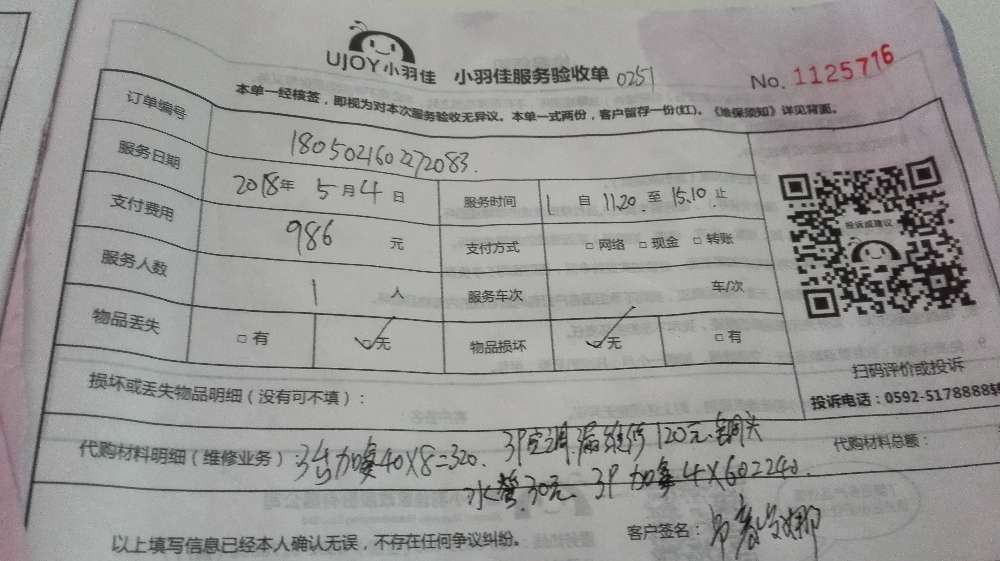 UJOY小羽佳 小羽佳服务验收单 0251 No. 1125716
本单一经核签，即视为对本次服务验收无异议。本单一式两份，客户留存一份(红)。《维保须知》详见背面。
订单编号 180502160272083.
服务日期 2018年 5月 4日 服务时间 自 11.20 至 15.10 止
支付费用 986 元 支付方式 □网络 □现金 □转账
服务人数 1 人 服务车次 车/次
物品丢失 □有 ☑无 物品损坏 ☑无 □有
投诉或建议
扫码评价或投诉
投诉电话：0592-5178888转
损坏或丢失物品明细（没有可不填）：
代购材料明细（维修业务）：3台加 40X8=320. 3P空调漏维修120元. 铜头 代购材料总额：
水 30元 3P 加 4X60=240.
客户签名：
以上填写信息已经本人确认无误，不存在任何争议纠纷。